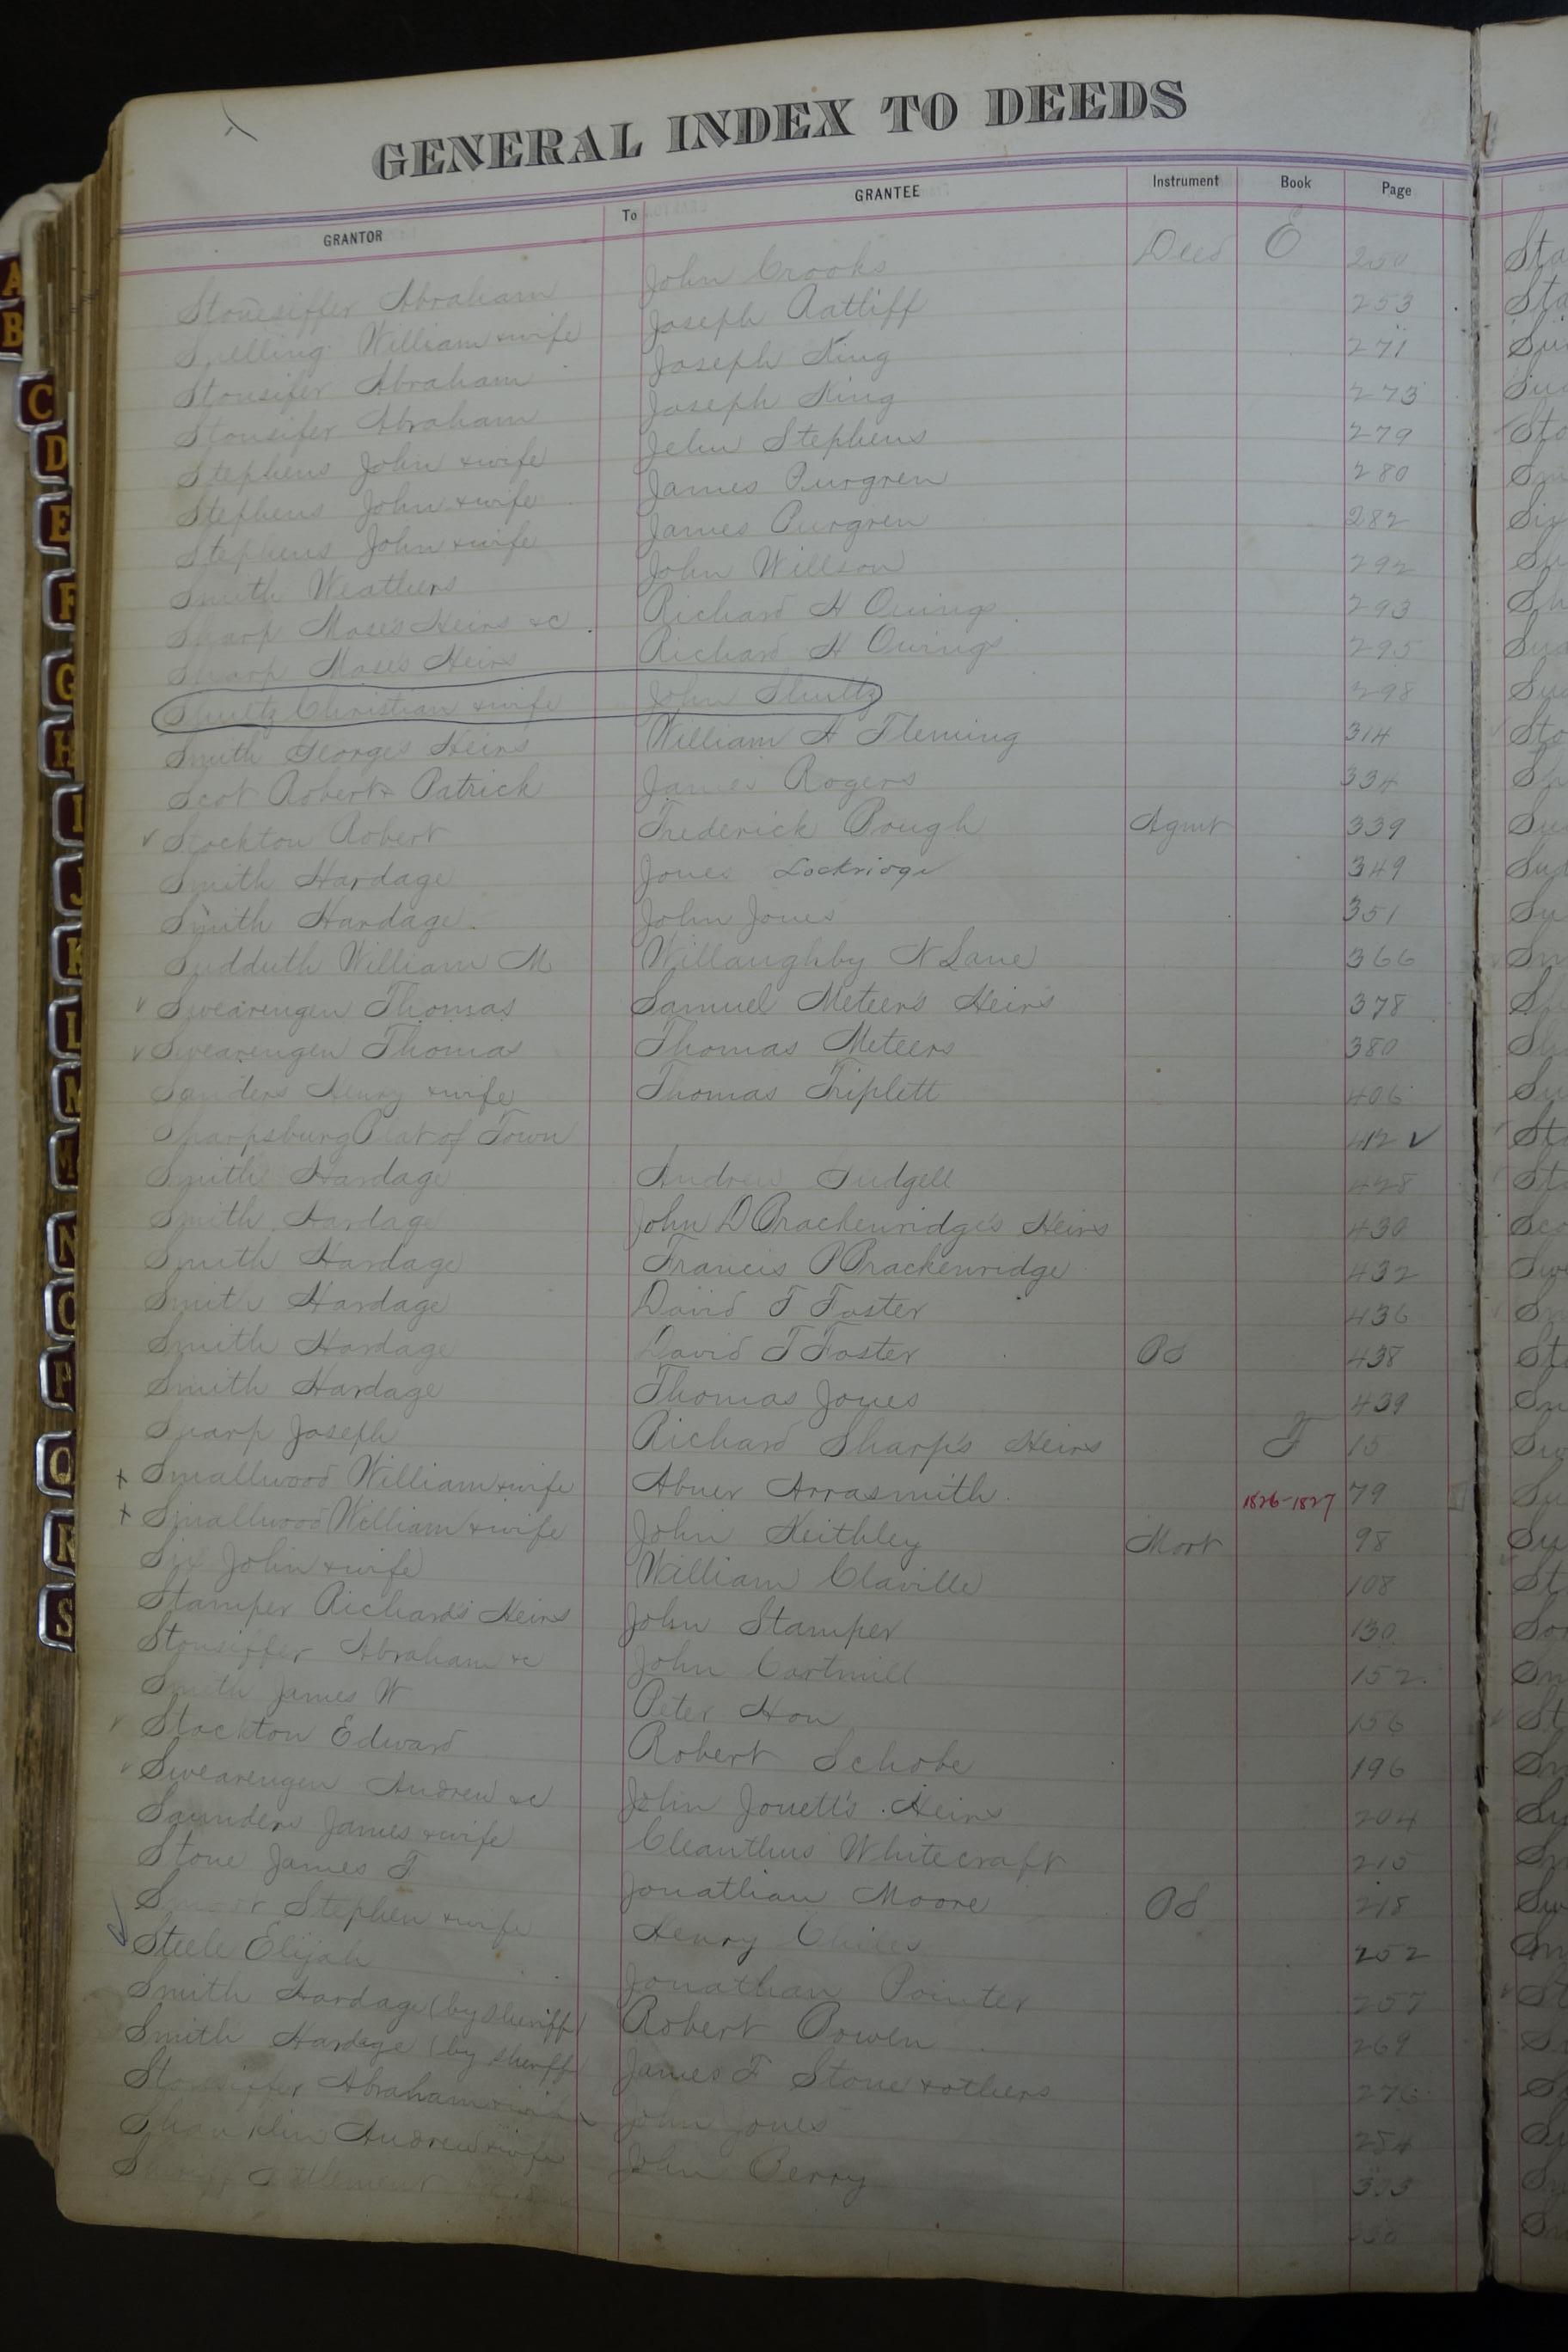 GENERAL INDEX TO DEEDS
GRANTOR To GRANTEE Instrument Book Page
Stonesiffer Abraham John Crooks Deed E 250
Snelling William & wife Joseph Ratliff 253
Stonsifer Abraham Joseph King 271
Stonsifer Abraham Joseph King 273
Stephens John & wife John Stephens 279
Stephens John & wife James Purgren 280
Stephens John & wife James Purgren 282
Smith Weathers John Willson 292
Sharp Moses Heirs &c Richard H Owings 293
Sharp Moses Heirs Richard H Owings 295
Shultz Christian & wife John Shultz 298
Smith George's Heirs William H Fleming 314
Scot Robert & Patrick James Rogers 334
✓ Stockton Robert Frederick Pough Agmt 339
Smith Hardage Jones Lockridge 349
Smith Hardage John Jones 351
Sudduth William M Willaughby N Lane 366
✓ Swearengen Thomas Samuel Meteer's Heirs 378
✓ Swearengen Thomas Thomas Meteers 380
Sanders Henry & wife Thomas Triplett 406
Sharpsburg Plat of Town 412 ✓
Smith Hardage Andrew Tudgell 428
Smith Hardage John D Brackenridge's Heirs 430
Smith Hardage Francis P Brackenridge 432
Smith Hardage David T Foster 436
Smith Hardage David T Foster Do 438
Smith Hardage Thomas Jones 439
Sharp Joseph Richard Sharp's Heirs F 15
+ Smallwood William & wife Abner Arrasmith 1826-1827 79
+ Smallwood William & wife John Keithley Mort 98
Six John & wife William Claville 108
Stamper Richard's Heirs John Stamper 130
Stonsiffer Abraham &c John Cartmill 152
Smith James W Peter Hon 156
✓ Stockton Edward Robert Schobe 196
✓ Swearengen Andrew &c John Jouett's Heirs 204
Saunders James & wife Cleanthus Whitecraft 215
Stone James T Jonathan Moore Do 218
Stephen & wife Henry Chiles 252
✓ Steele Elijah Jonathan Pointer 257
Smith Hardage (by Sheriff) Robert Bowen 269
Smith Hardage (by Sheriff) James F Stone & others 276
Stonesiffer Abraham & wife John Jones 284
Shanklin Andrew & wife John Berry 333